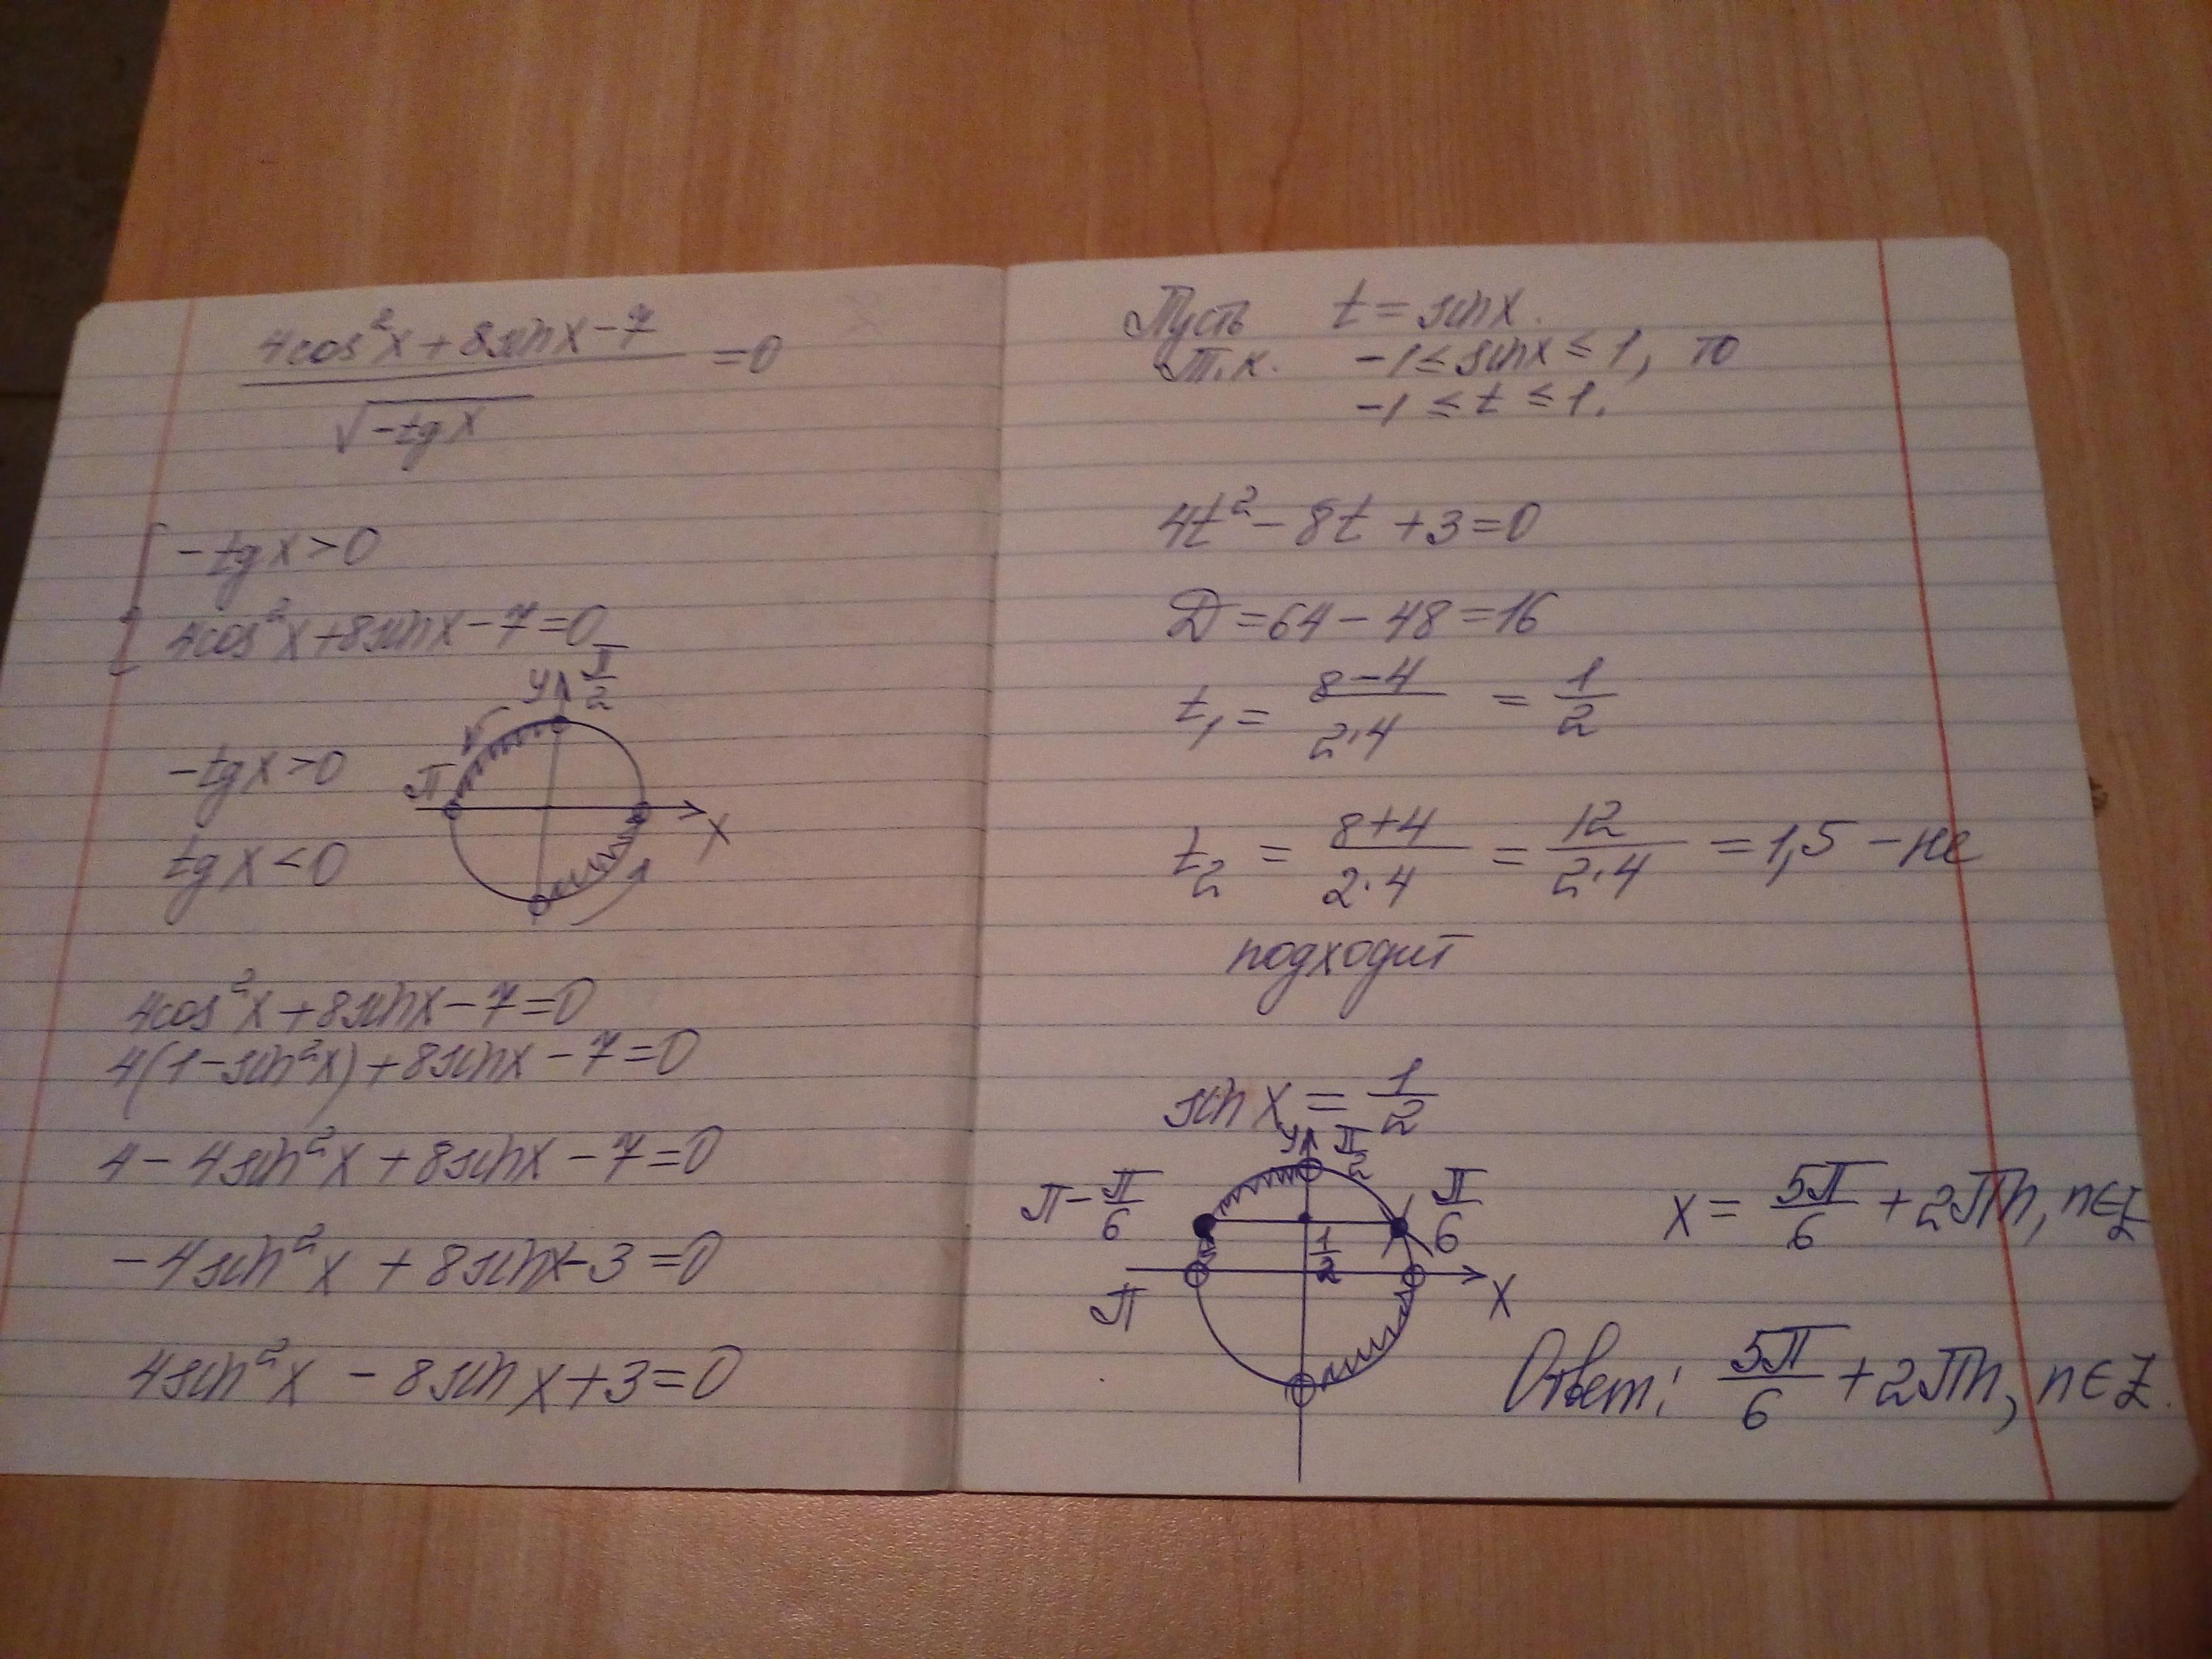 4cos²x + 8sinx − 7
= 0
√−tgx
−tgx > 0
4cos²x + 8sinx − 7 = 0
y π/2
−tgx > 0
π
x
tgx < 0
4cos²x + 8sinx − 7 = 0
4(1 − sin²x) + 8sinx − 7 = 0
4 − 4sin²x + 8sinx − 7 = 0
−4sin²x + 8sinx − 3 = 0
4sin²x − 8sinx + 3 = 0
Пусть t = sinx.
Т.к. −1 ≤ sinx ≤ 1, то
−1 ≤ t ≤ 1.
4t² − 8t + 3 = 0
D = 64 − 48 = 16
t₁ = (8 − 4)/(2·4) = 1/2
t₂ = (8 + 4)/(2·4) = 12/(2·4) = 1,5 − не
подходит
sinx = 1/2
y π/2
π − π/6 π/6
1/2
π
x
x = 5π/6 + 2πn, n∈Z
Ответ: 5π/6 + 2πn, n∈Z.